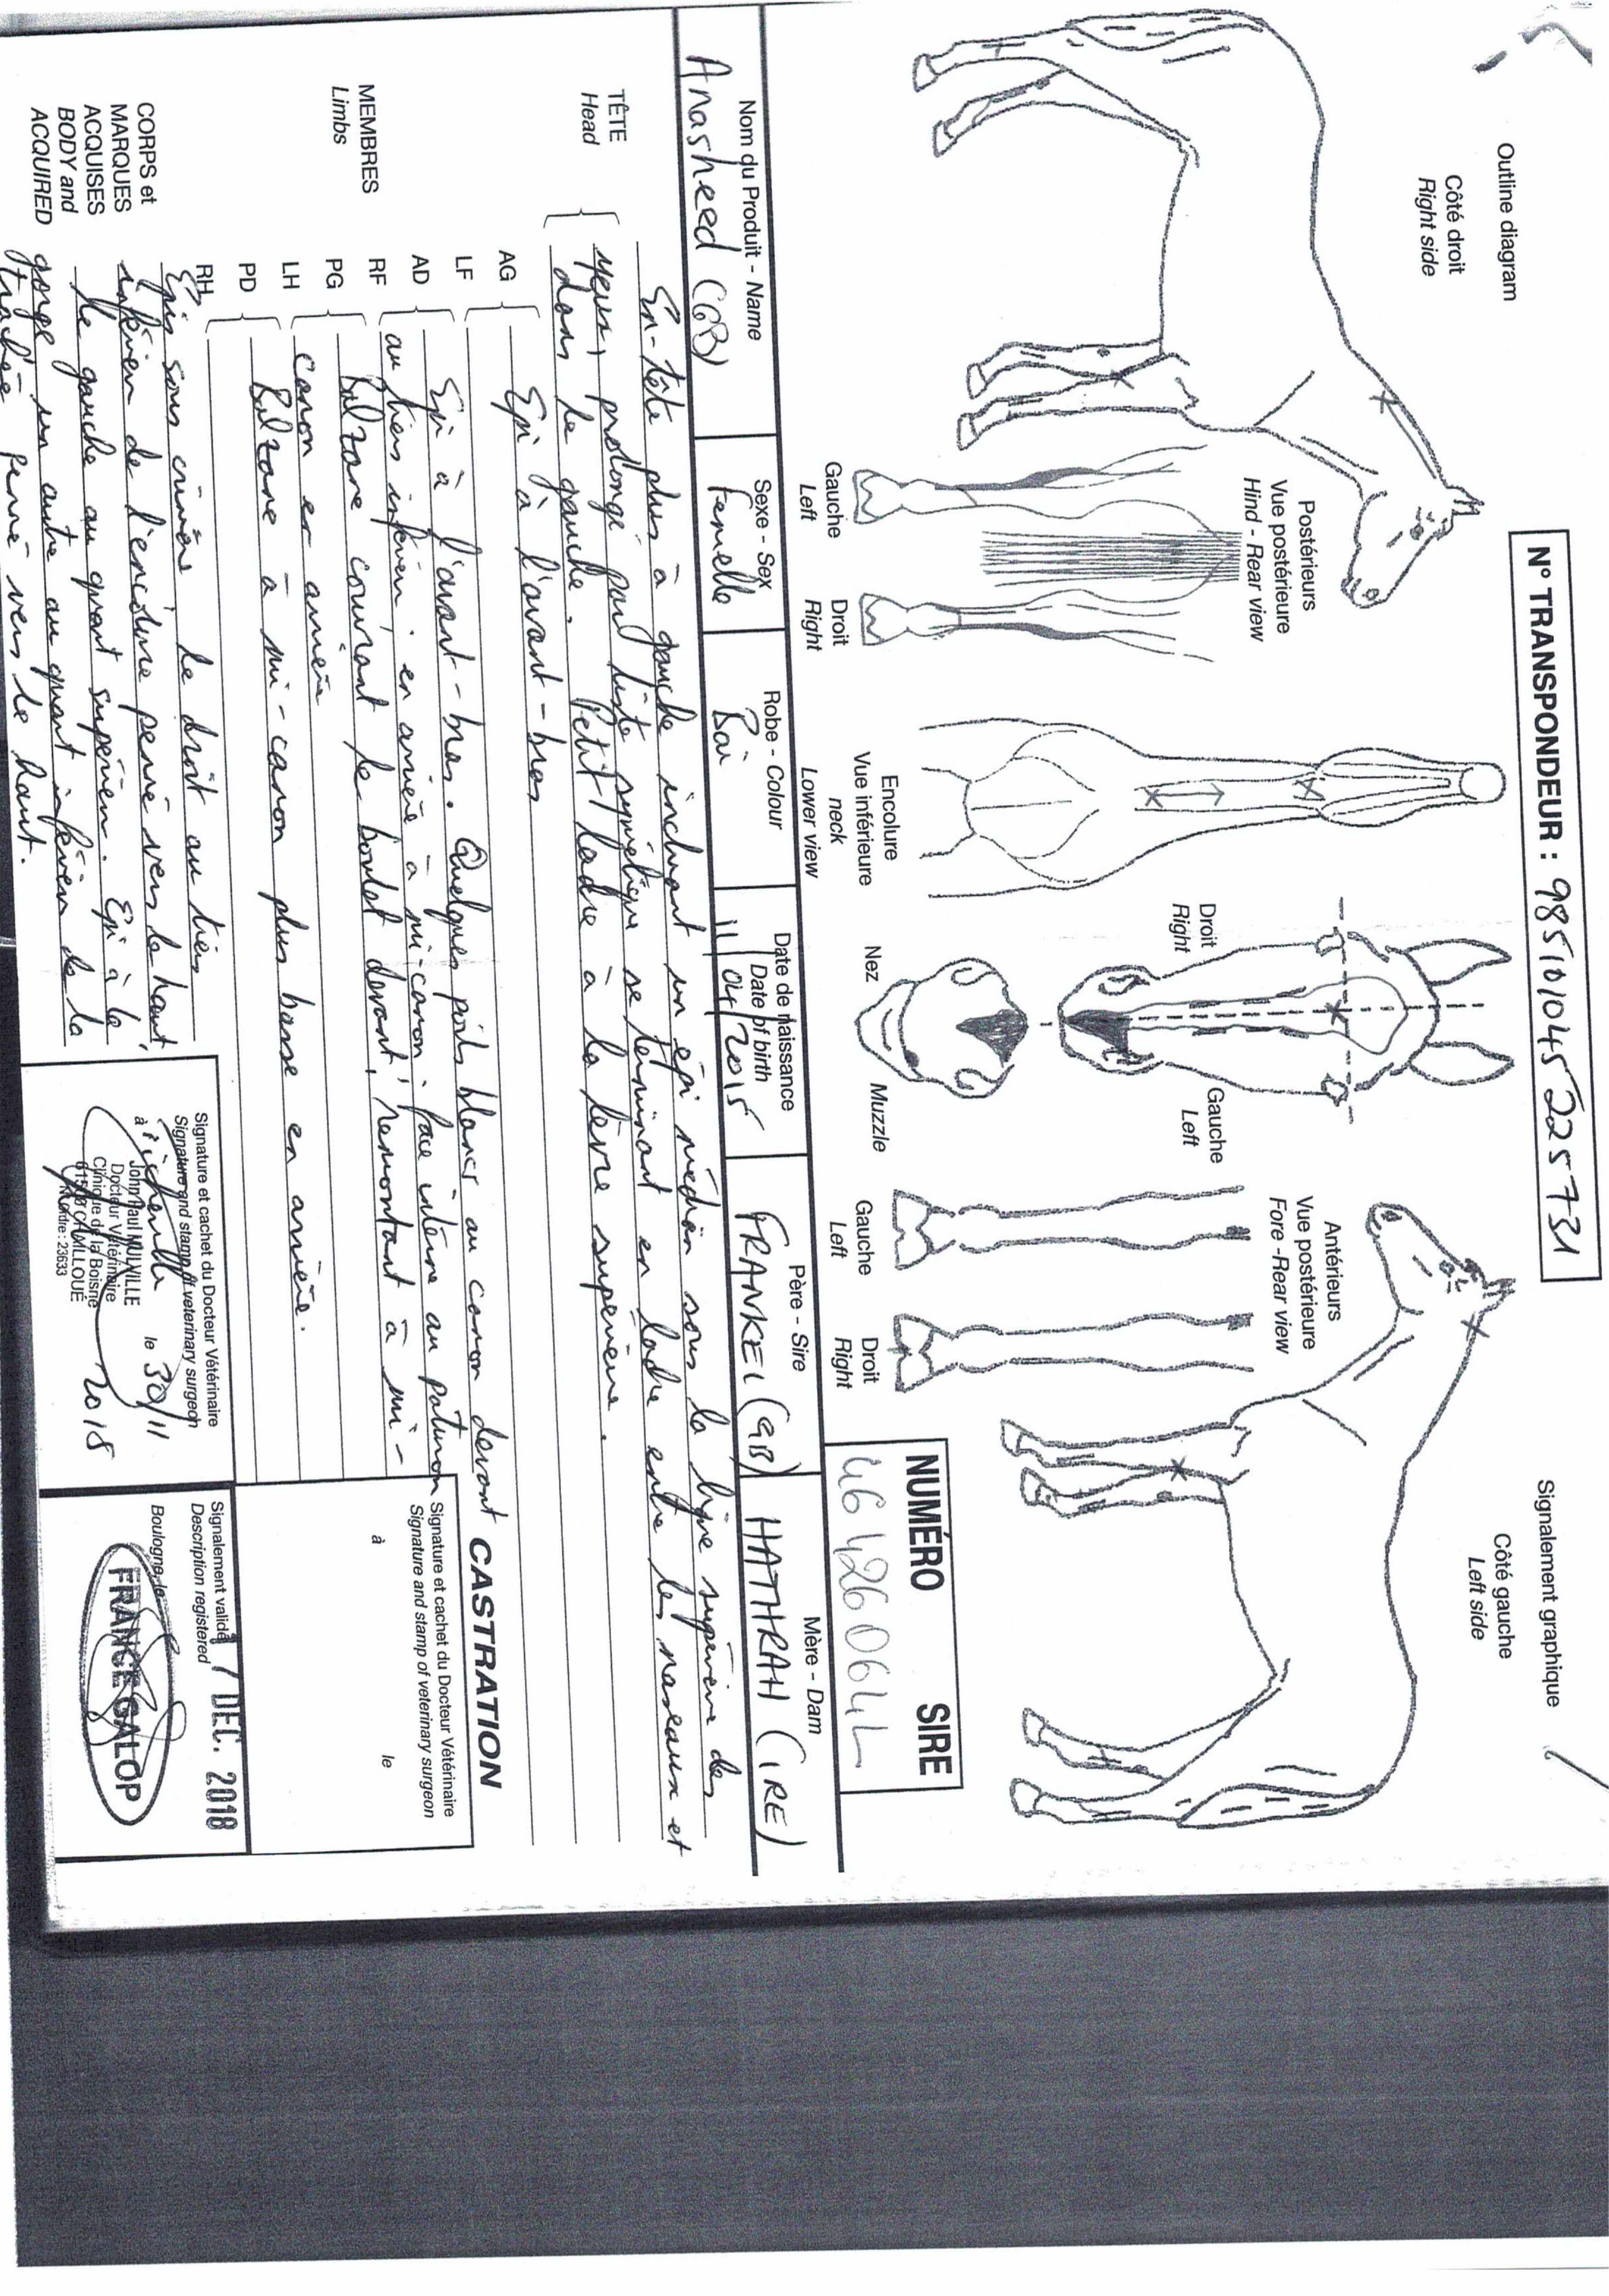 Outline diagram
Côté droit
Right side
N° TRANSPONDEUR : 985101045225731
Signalement graphique
Côté gauche
Left side
Postérieurs
Vue postérieure
Hind - Rear view
Gauche
Left
Droit
Right
Encolure
Vue inférieure
neck
Lower view
Droit
Right
Gauche
Left
Nez
Muzzle
Antérieurs
Vue postérieure
Fore -Rear view
Gauche
Left
Droit
Right
NUMÉRO SIRE
Nom du Produit - Name
Anasheed (GB)
Sexe - Sex
Femelle
Robe - Colour
Bai
Date de naissance
Date of birth
11/04/2015
Père - Sire
FRANKEL (GB)
Mère - Dam
HATHRAH (IRE)
TÊTE
Head
En-tête plus à gauche incluant un épi médian sous la ligne supérieure des
yeux, prolongé par liste se terminant en ladre entre les naseaux et
dans le gauche. Petit ladre à la lèvre supérieure.
MEMBRES
Limbs
AG
LF
Epi à l'avant-bras
AD
RF
Epi à l'avant-bras. Quelques poils blancs au canon devant
au tiers inférieur, en arrière à mi-canon, face interne au paturon
PG
LH
Balzane couvrant le boulet devant, remontant à mi-
canon en arrière
PD
RH
Balzane à mi-canon plus basse en arrière.
CORPS et
MARQUES
ACQUISES
BODY and
ACQUIRED
Epis sous crinière le droit au tiers
inférieur de l'encolure penné vers le haut,
le gauche au quart supérieur. Epi à la
gorge un autre au quart inférieur de la
trachée penné vers le haut.
CASTRATION
Signature et cachet du Docteur Vétérinaire
Signature and stamp of veterinary surgeon
à le
Signature et cachet du Docteur Vétérinaire
Signature and stamp of veterinary surgeon
à le 30/11
2018
John Paul
Docteur Vétérinaire
Clinique de la Boisne
N° Ordre : 23633
Signalement validé
Description registered
17 DEC. 2018
Boulogne, le
FRANCE GALOP